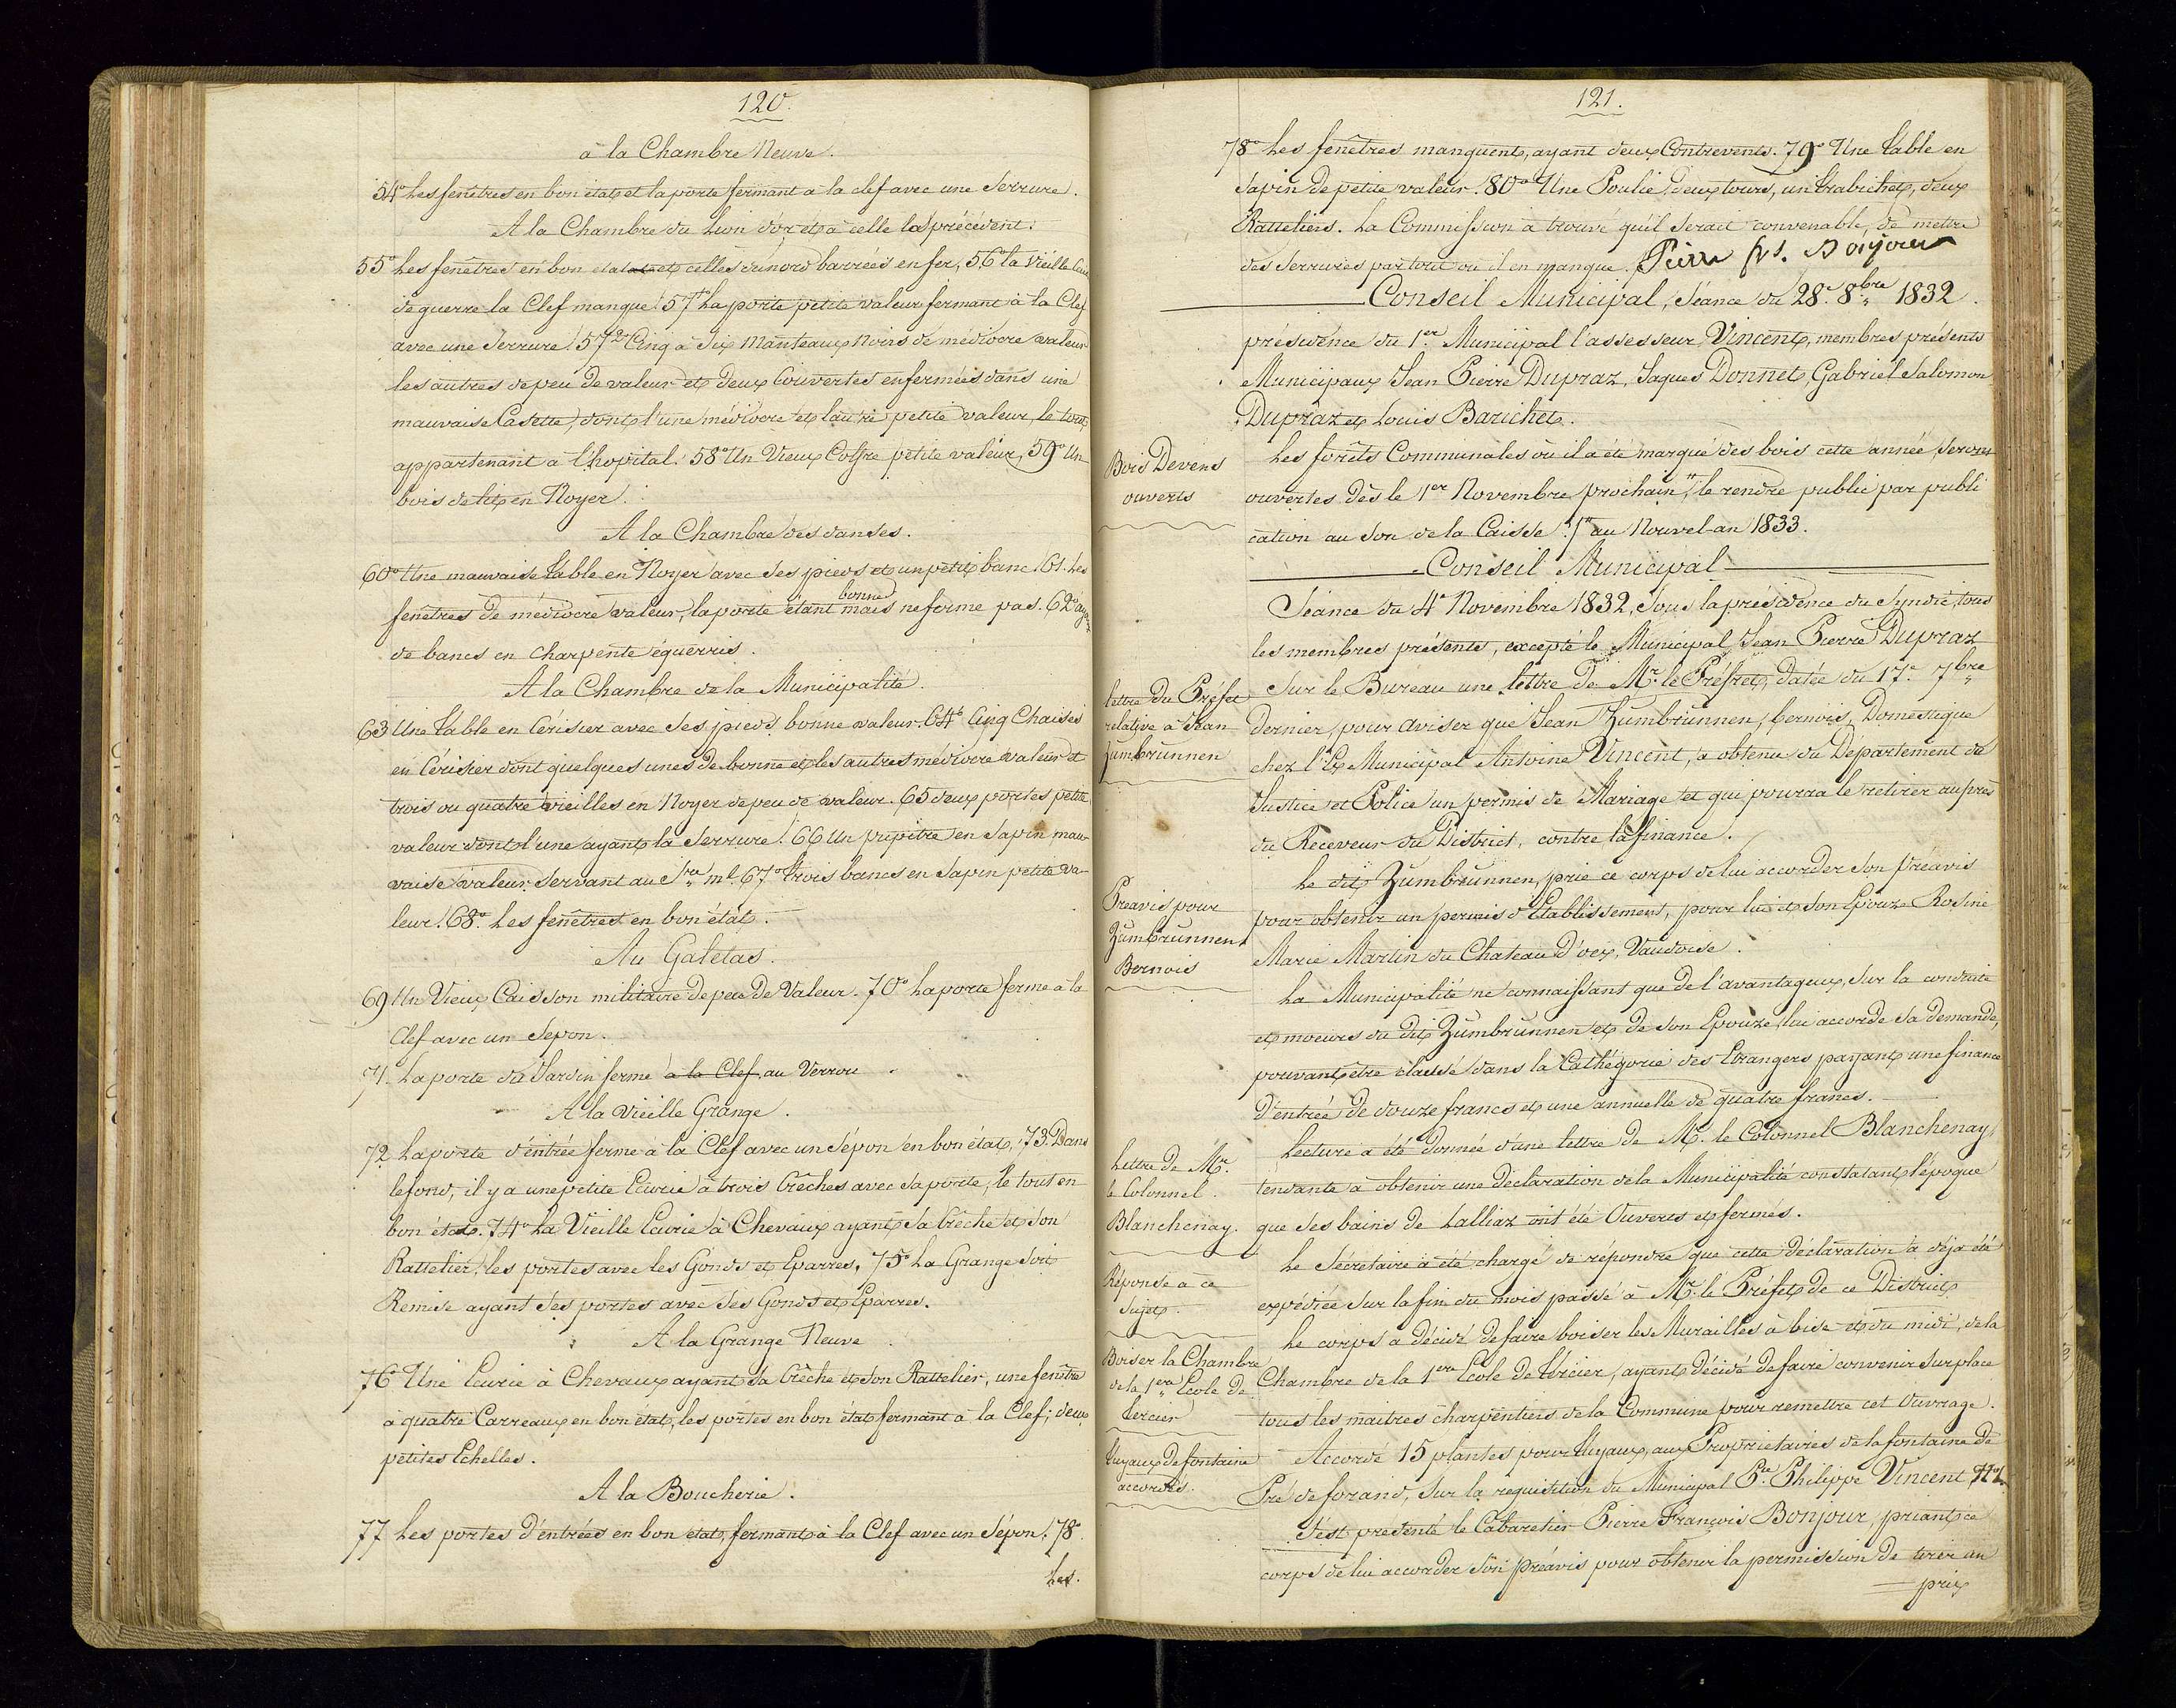 120.
à la Chambre Neuve.
54° Les fenêtres en bon état et la porte fermant à la clef avec une Serrure.
A la Chambre du Lion d'or et à celle la précédent.
55° Les fenêtres en bon etat et celles du nord barrées en fer, 56° la Vieille Caisse
de guerre la Clef manque! 57° La porte petite valeur fermant à la Clef
avec une Serrure! 57 2° Cinq à Six Manteaux Noirs de médiocre valeur
les autres de peu de valeur et deux Couvertes enfermées dans une
mauvaise Casette, dont l'une médiocre et l'autre petite valeur, le tout
appartenant à l'hopital. 58° Un Vieux Coffre petite valeur, 59° Un
bois de lit en Noyer.
A la Chambre des danses.
60° Une mauvaise table en Noyer avec ses pieds et un petit banc! 61. Les
fenêtres de médiocre valeur, la porte étant bonne mais ne ferme pas. 62°
de bancs en charpente équerris.
A la Chambre de la Municipalité.
63 Une table en Cérisier avec ses pieds bonne valeur. 64° Cinq Chaises
en Cérisier dont quelques unes de bonne et les autres médiocre valeur et
trois ou quatre vieilles en Noyer de peu de valeur. 65 deux portes petite
valeur dont l'une ayant la Serrure! 66 Un pupitre en Sapin mau-
vaise valeur servant au Sre ml. 67° trois bancs en Sapin petite va-
leur! 68° Les fenêtres en bon état.
Au Galetas.
69 Un Vieux Caisson militaire de peu de Valeur. 70° La porte ferme à la
Clef avec un Sepon.
71. La porte du Jardin ferme à la Clef au Verrou.
A la Vieille Grange.
72 La porte d'entrée ferme à la Clef avec un Sépon en bon état, 73. Dans
le fond, il y a une petite Ecurie à trois Crêches avec sa porte, le tout en
bon état. 74° La Vieille Ecurie à Chevaux ayant sa Crêche et son
Rattelier, les portes avec les Gonds et Eparres, 75° La Grange soit
Remise ayant ses portes avec ses Gonds et Eparres.
A la Grange Neuve
76° Une Ecurie à Chevaux ayant sa Crêche et son Rattelier, une fenêtre
à quatre Carreaux en bon état, les portes en bon état fermant à la Clef; deux
petites Echelles.
A la Boucherie.
77 Les portes d'entrées en bon etat, fermant à la Clef avec un Sépon. 78°
Les.
121.
78° Les fenêtres manquent, ayant deux Contrevents. 79° Une table en
Sapin de petite valeur. 80° Une Poulie, deux tours, un trabichet, deux
Ratteliers. La Commission à trouvé qu'il serait convenable, de mettre
des Serrures partout où il en manque. Pierre frs. Bonjour
Conseil Municipal, Séance du 28e. 8bre 1832.
présidence du 1er Municipal l'assesseur Vincent, membres présents
Municipaux Jean Pierre Dupraz, Jaques Donnet, Gabriel Salomon
Dupraz et Louis Barichet.
Bois Devens
ouverts
Les forêts Communales où il a été marqué des bois cette année, seront
ouvertes dès le 1er Novembre prochain, le rendre public par publi
cation au son de la Caisse. au Nouvel-an 1833.
Conseil Municipal
Séance du 4e Novembre 1832, Sous la présidence du Syndic, tous
les membres présents, excepté le Municipal Jean Pierre Dupraz
lettre du Préfet
relative à Jean
Zumbrunnen
Sur le Bureau une lettre de Mr. le Préfet, datée du 17e. 7bre
dernier, pour aviser que Jean Zumbrunnen, bernois, Domestique
chez l'Ex Municipal Antoine Vincent, a obtenu du Département de
Justice et Police un permis de Mariage et qui pourra le retirer auprès
du Receveur du District, contre la finance.
Préavis pour
Zumbrunnen
Bernois
Le dit Zumbrunnen, prie ce corps de lui accorder son préavis
pour obtenir un permis d'Etablissement, pour lui et son Epouze Rosine
Marie Martin du Chateau d'oex, Vaudoise.
La Municipalité ne connaissant que de l'avantageux, sur la conduite
et moeurs du dit Zumbrunnen et de son Epouze, lui accorde sa demande,
pouvant être classé dans la Cathégorie des Etrangers payant une finance
d'entrée de douze francs et une annuelle de quatre francs.
Lettre de Mr.
le Colonnel
Blanchenay.
Lecture a été donnée d'une lettre de Mr. le Colonnel Blanchenay,
tendante à obtenir une déclaration de la Municipalité constatant l'époque
que ses bains de Lalliaz ont été Ouverts et fermés.
Réponse à ce
Sujet.
Le Sécretaire a été chargé de répondre que cette déclaration a déja été
expédiée sur la fin du mois passé à Mr. le Préfet de ce District
Boiser la Chambre
de la 1ere Ecole de
Tercier
Le corps a décidé de faire boiser les Murailles à bise et du midi, de la
Chambre de la 1ere Ecole de Tercier, ayant décidé de faire convenir sur place
tous les maitres charpentiers de la Commune pour remettre cet Ouvrage.
Tuyaux de fontaine
accordés.
Accordé 15 plantes pour tuyaux, aux Propriétaires de la fontaine de
Pré de forand, sur la réquisition du Municipal Pre Philippe Vincent
S'est présenté le Cabaretier Pierre François Bonjour, priant ce
corps de lui accorder son préavis pour obtenir la permission de tirer un
prix